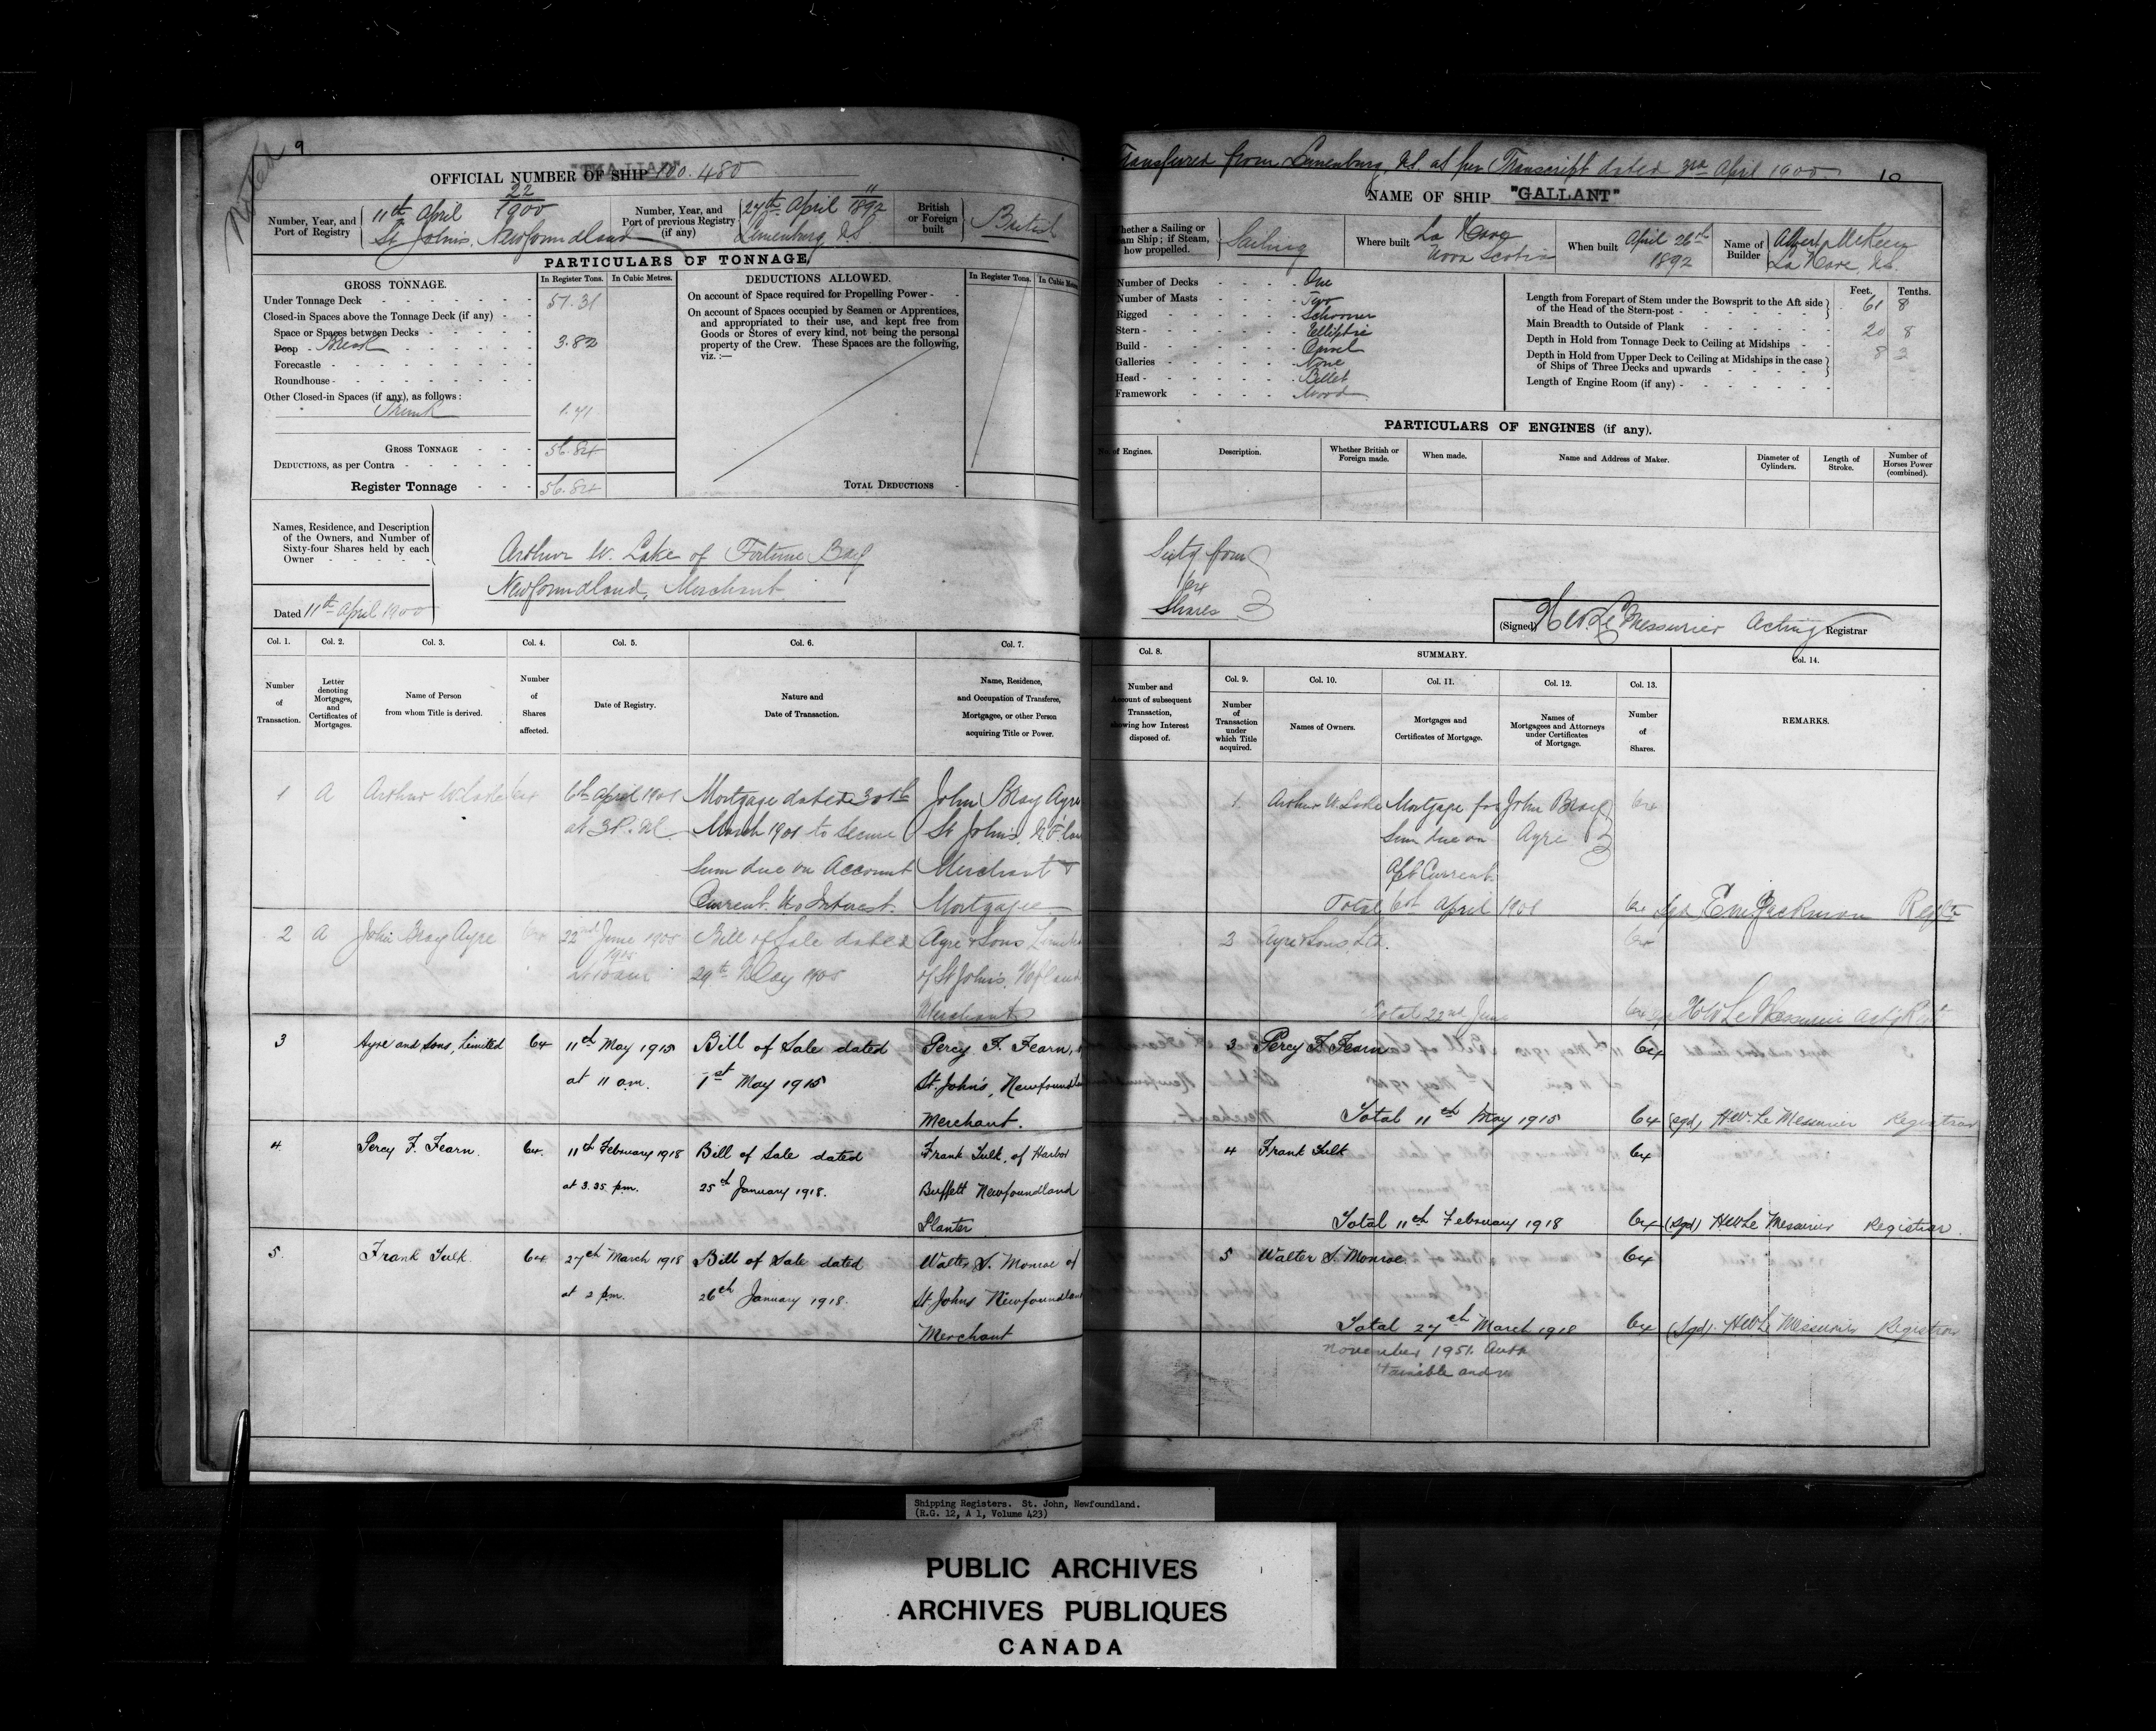 Noted
9
OFFICIAL NUMBER OF SHIP 100.480
Number, Year, and Port of Registry
22
11th April 1900
St John's, Newfoundland
Number, Year, and Port of previous Registry (if any)
11
27th April 1892
Lunenburg NS
British or Foreign built
British
PARTICULARS OF TONNAGE
GROSS TONNAGE.
In Register Tons.
In Cubic Metres.
Under Tonnage Deck
51.31
Closed-in Spaces above the Tonnage Deck (if any)
Space or Spaces between Decks
Poop Break
3.82
Forecastle
Roundhouse
Other Closed-in Spaces (if any), as follows:
Trunk
1.71
GROSS TONNAGE
56.84
DEDUCTIONS, as per Contra
Register Tonnage
56.84
DEDUCTIONS ALLOWED.
In Register Tons.
In Cubic Metres
On account of Space required for Propelling Power
On account of Spaces occupied by Seamen or Apprentices, and appropriated to their use, and kept free from Goods or Stores of every kind, not being the personal property of the Crew. These Spaces are the following, viz.:—
TOTAL DEDUCTIONS
Names, Residence, and Description of the Owners, and Number of Sixty-four Shares held by each Owner
Arthur W. Lake of Fortune Bay
Newfoundland, Merchant
Dated 11th April 1900
Col. 1.
Col. 2.
Col. 3.
Col. 4.
Col. 5.
Col. 6.
Col. 7.
Number of Transaction.
Letter denoting Mortgages, and Certificates of Mortgages.
Name of Person from whom Title is derived.
Number of Shares affected.
Date of Registry.
Nature and Date of Transaction.
Name, Residence, and Occupation of Transferee, Mortgagee, or other Person acquiring Title or Power.
1 A Arthur W. Lake 64 6th April 1901 Mortgage dated 30th John Bray Ayre
at 3 P.M. March 1901 to secure St John's,
Sum due on Account Merchant
Current. No Interest. Mortgagee
2 A John Bray Ayre 64 22nd June 1905 Bill of Sale dated Ayre & Sons
29th May 1905 of St John's,
Merchants
3 Ayre and Sons, Limited 64 11th May 1915 Bill of Sale dated Percy F. Fearn,
at 11 a.m. 1st May 1915 St. John's,
Merchant.
4 Percy F. Fearn. 64 11th February 1918 Bill of Sale dated Frank Tulk, of Harbor
at 3.25 pm. 25th January 1918. Buffett Newfoundland
Planter
5 Frank Tulk 64 27th March 1918 Bill of Sale dated Walter S. Monroe of
at 2 pm. 26th January 1918. St Johns
Merchant
Transferred from Lunenburg, NS. as per Transcript dated 3rd April 1900
10
NAME OF SHIP "GALLANT"
Whether a Sailing or Steam Ship; if Steam, how propelled.
Sailing
Where built
La Have
Nova Scotia
When built
April 26th
1892
Name of Builder
Albert
La Have, NS.
Number of Decks One
Number of Masts Two
Rigged Schooner
Stern Elliptic
Build Carvel
Galleries None
Head Billet
Framework Wood
Feet. Tenths.
Length from Forepart of Stem under the Bowsprit to the Aft side of the Head of the Stern-post 61 8
Main Breadth to Outside of Plank 20 8
Depth in Hold from Tonnage Deck to Ceiling at Midships 8 3
Depth in Hold from Upper Deck to Ceiling at Midships in the case of Ships of Three Decks and upwards
Length of Engine Room (if any)
PARTICULARS OF ENGINES (if any).
No. of Engines.
Description.
Whether British or Foreign made.
When made.
Name and Address of Maker.
Diameter of Cylinders.
Length of Stroke.
Number of Horses Power (combined).
Sixty four
64
Shares
(Signed) H W Le Messurier Acting Registrar
Col. 8.
SUMMARY.
Col. 14.
Number and Amount of subsequent Transaction, showing how Interest disposed of.
Col. 9.
Col. 10.
Col. 11.
Col. 12.
Col. 13.
Number of Transaction under which Title acquired.
Names of Owners.
Mortgages and Certificates of Mortgage.
Names of Mortgagees and Attorneys under Certificates of Mortgage.
Number of Shares.
REMARKS.
1. Arthur W. Lake Mortgage for John Bray 64
Sum due on Ayre
Current
Total 6th April 1901 64 Jackman
Ayre & Sons Ltd. 64
Total 22nd June 64 H W Le Messurier
3 Percy F Fearn 64
Total 11th May 1915 64 (sgd) H W. Le Messurier Registrar
4 Frank Tulk 64
Total 11th February 1918 64 (Sgd) H W Le Messurier Registrar
5 Walter S. Monroe. 64
Total 27th March 1918 64 (Sgd). H W Le Messurier Registrar
November 1951.
Shipping Registers. St. John, Newfoundland.
(R.G. 12, A 1, Volume 423)
PUBLIC ARCHIVES
ARCHIVES PUBLIQUES
CANADA